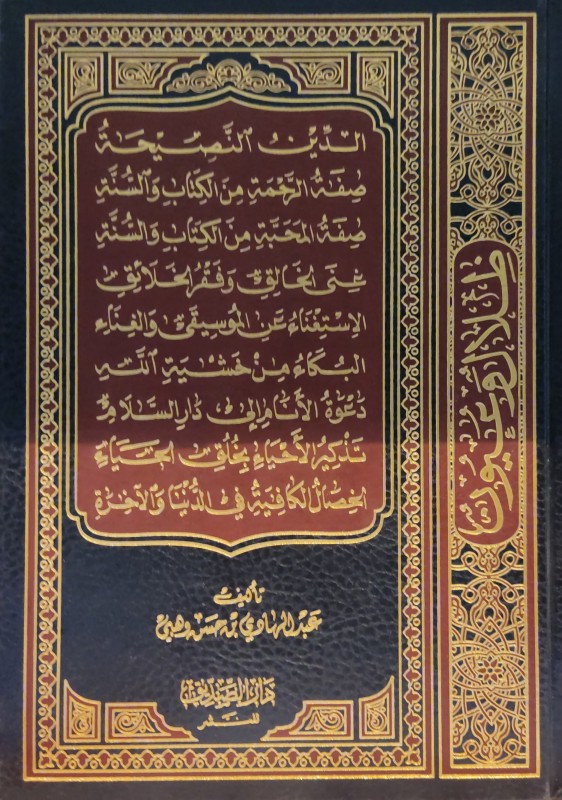 الدِّينُ النَّصِيحَةُ
صِفَةُ الرَّحْمَةِ مِنَ الكِتَابِ وَالسُّنَّةِ
صِفَةُ المَحَبَّةِ مِنَ الكِتَابِ وَالسُّنَّةِ
غِنَى الخَالِقِ وَفَقْرُ الخَلَائِقِ
الاِسْتِغْنَاءُ عَنِ المُوسِيقَى وَالغِنَاءِ
البُكَاءُ مِنْ خَشْيَةِ اللَّهِ
دَعْوَةُ الأَنَامِ إِلَى دَارِ السَّلَامِ
تَذْكِيرُ الأَحْيَاءِ بِخُلُقِ الحَيَاءِ
الخِصَالُ الكَافِيَةُ فِي الدُّنْيَا وَالآخِرَةِ
تأليف
عبد الهادي بن حسن وهبي
للنشر
ظلال وعيون